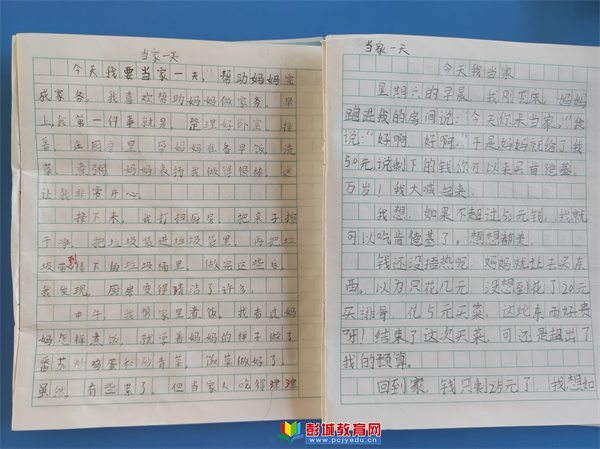 当家一天
今天我要当家一天，帮助妈妈完
成家务。我喜欢帮助妈妈做家务。早
上我第一件事就是，整理好卧室，
在厨房里，帮妈妈在备早饭，洗
菜，煮粥，妈妈表扬我做得很棒，这
让我非常开心。
接下来，我打扫厨房，把桌子擦
干净，把垃圾装进垃圾袋里，再把垃
圾丢到楼下的垃圾桶里，做完这些后，
我发现，厨房变得精洁了许多。
中午，我帮家里煮饭，我看过妈
妈怎样煮饭，就学着妈妈的样子做了
番茄炒鸡蛋和炒青菜，饭菜做好了，
虽然有些累了，但当家人吃得津津
当家一天
今天我当家
星期六的早晨，我刚起床，妈妈
跑进我的房间说："今天你来当家。"我
说："好啊，好啊。"于是妈妈就给了我
50元，说剩下的钱你可以来买肯德基。
万岁！我大喊起来。
我想，如果不超过50元钱，我就
可以吃肯德基了。想想都美。
钱还没捂热呢，妈妈就让去买东
西。以为只花几元，没想到花了20元
买排骨，花5元买菜，这比东西好贵
呀！结束了这次买菜，可还是超出了
我的预算。
回到家，钱只剩25元了，我想如
彭城教育网
www.pcjyedu.cn